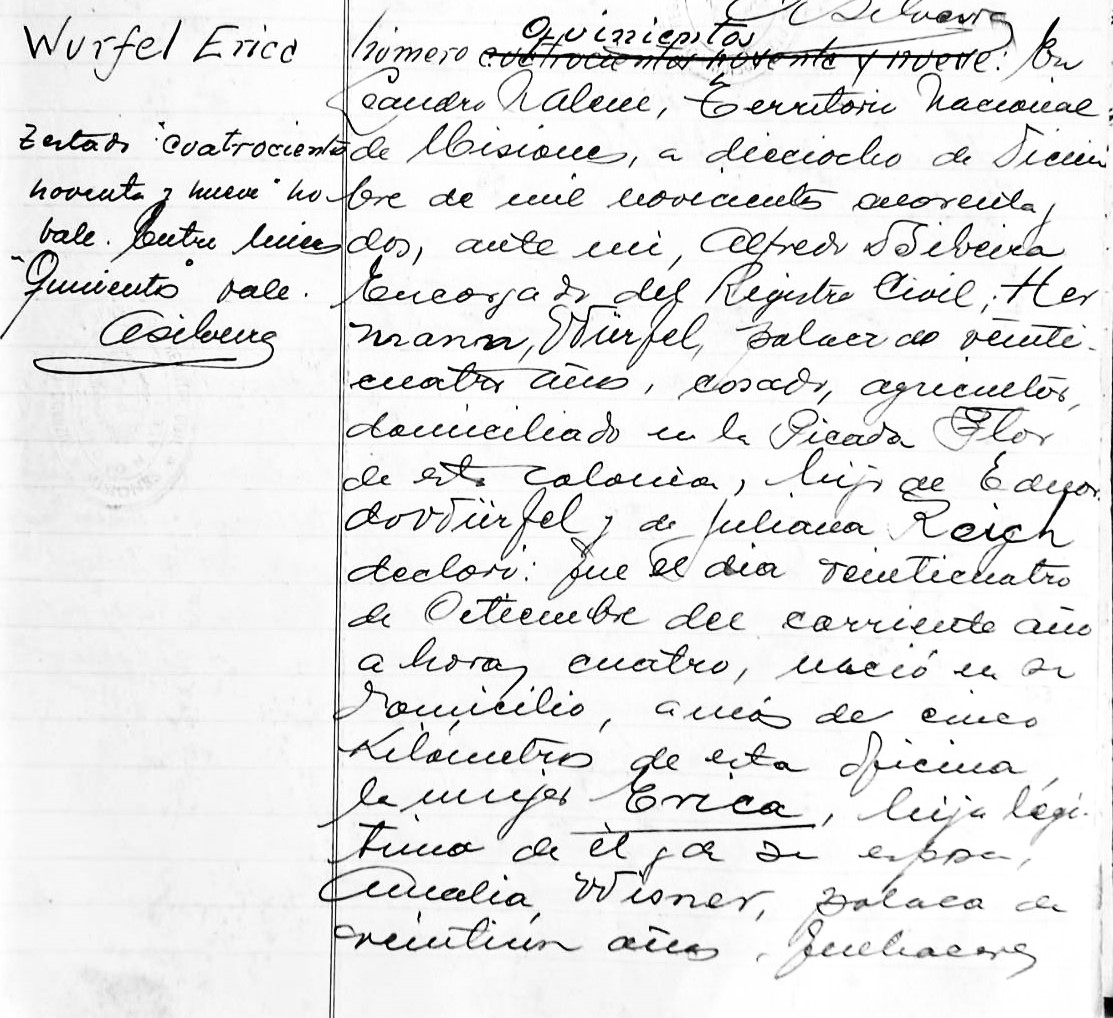 Wurfel Erica
Testado "cuatrocientos
noventa y nueve" no
vale. Entre lineas
"Quinientos" vale.
ASilveira
ASilveira
Quinientos
Número cuatrocientos noventa y nueve: En
Leandro N Alem, Territorio Nacional
de Misiones, a dieciocho de Diciem
bre de mil novecientos cuarenta y
dos, ante mi, Alfredo Silveira
Encargado del Registro Civil, Her
mann, Würfel, polaco de veinti-
cuatro años, casado, agricultor,
domiciliado en la Picada Flor
de esta colonia, hijo de Eduar
do Würfel y de Juliana Reich
declaró: Que el dia veinticuatro
de Setiembre del corriente año
a horas cuatro, nació en su
Domicilio, a más de cinco
Kilómetros de esta Oficina,
la mujer Erica, hija légi-
tima de él y de su esposa,
Amalia, Wisner, polaca de
veintiun años, quehaceres